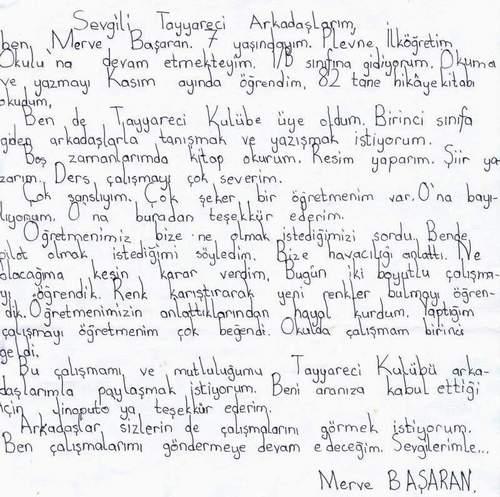 Sevgili Tayyareci Arkadaşlarım,
ben, Merve Başaran. 7 yaşındayım. Plevne İlköğretim
Okulu'na devam etmekteyim. 1/B sınıfına gidiyorum. Okuma
ve yazmayı Kasım ayında öğrendim, 82 tane hikâye kitabı
okudum,
Ben de Tayyareci Kulübe üye oldum. Birinci sınıfa
giden arkadaşlarla tanışmak ve yazışmak istiyorum.
Boş zamanlarımda kitap okurum. Resim yaparım. Şiir ya-
zarım. Ders çalışmayı çok severim.
Çok şanslıyım. Çok şeker bir öğretmenim var. O'na bayı-
lıyorum. O'na buradan teşekkür ederim.
Öğretmenimiz bize ne olmak istediğimizi sordu. Bende
pilot olmak istediğimi söyledim. Bize havacılığı anlattı. Ne
olacağıma kesin karar verdim. Bugün iki boyutlu çalışma-
yı öğrendik. Renk karıştırarak yeni renkler bulmayı öğren-
dik. Öğretmenimizin anlattıklarından hayal kurdum. Yaptığım
çalışmayı öğretmenim çok beğendi. Okulda çalışmam birinci
geldi.
Bu çalışmamı ve mutluluğumu Tayyareci Kulübü arka-
daşlarımla paylaşmak istiyorum. Beni aranıza kabul ettiği
için Jinaputo'ya teşekkür ederim.
Arkadaşlar sizlerin de çalışmalarını görmek istiyorum.
Ben çalışmalarımı göndermeye devam edeceğim. Sevgilerimle...
Merve BAŞARAN.